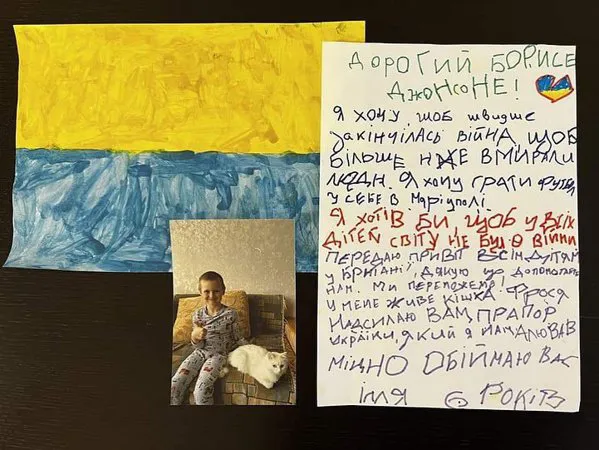 ДОРОГИЙ БОРИСЕ
ДЖОНСОНЕ!
Я ХОЧУ, ЩОБ швидше
закінчілась ВІЙНА, ЩОБ
БІЛЬШЕ НЕ ВМИРАЛИ
ЛЮДИ. Я хочу ГРАТИ
У СЕБЕ В Маріуполі.
Я ХОТІВ БИ, ЩОБ У ВСІХ
ДІТЕЙ СВІТУ НЕ БУЛО ВІЙНИ
ПЕРЕДАЮ ПРИВІТ ВСІМ ДІТЯМ
У БРИТАНІЇ, ДЯКУЮ що ДОПОМОГАЄТЕ
НАМ. МИ ПЕРЕМОЖЕМО!
У МЕНЕ ЖИВЕ КІШКА ФРОСЯ
НАДСИЛАЮ ВАМ ПРАПОР
України, ЯКИЙ Я НАМАЛЮВАВ
МІЦНО ОБІЙМАЮ ВАС
ІЛЛЯ 6 РОКІВ